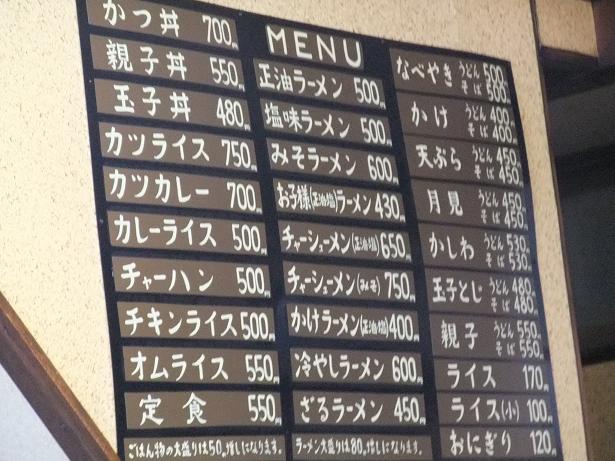 かつ丼 700円
親子丼 550円
玉子丼 480円
カツライス 750円
カツカレー 700円
カレーライス 500円
チャーハン 500円
チキンライス 500円
オムライス 550円
定食 550円
ごはん物の大盛りは50円増しになります。
MENU
正油ラーメン 500円
塩味ラーメン 500円
みそラーメン 600円
お子様(正油・塩)ラーメン 430円
チャーシューメン(正油・塩) 650円
チャーシューメン(みそ) 750円
かけラーメン(正油・塩) 400円
冷やしラーメン 600円
ざるラーメン 450円
ラーメン大盛りは80円増しになります。
なべやき うどん 500円
そば 500円
かけ うどん 400円
そば 400円
天ぷら うどん 450円
そば 450円
月見 うどん 450円
そば 450円
かしわ うどん 530円
そば 530円
玉子とじ うどん 480円
そば 480円
親子 うどん 550円
そば 550円
ライス 170円
ライス(小) 100円
おにぎり 120円